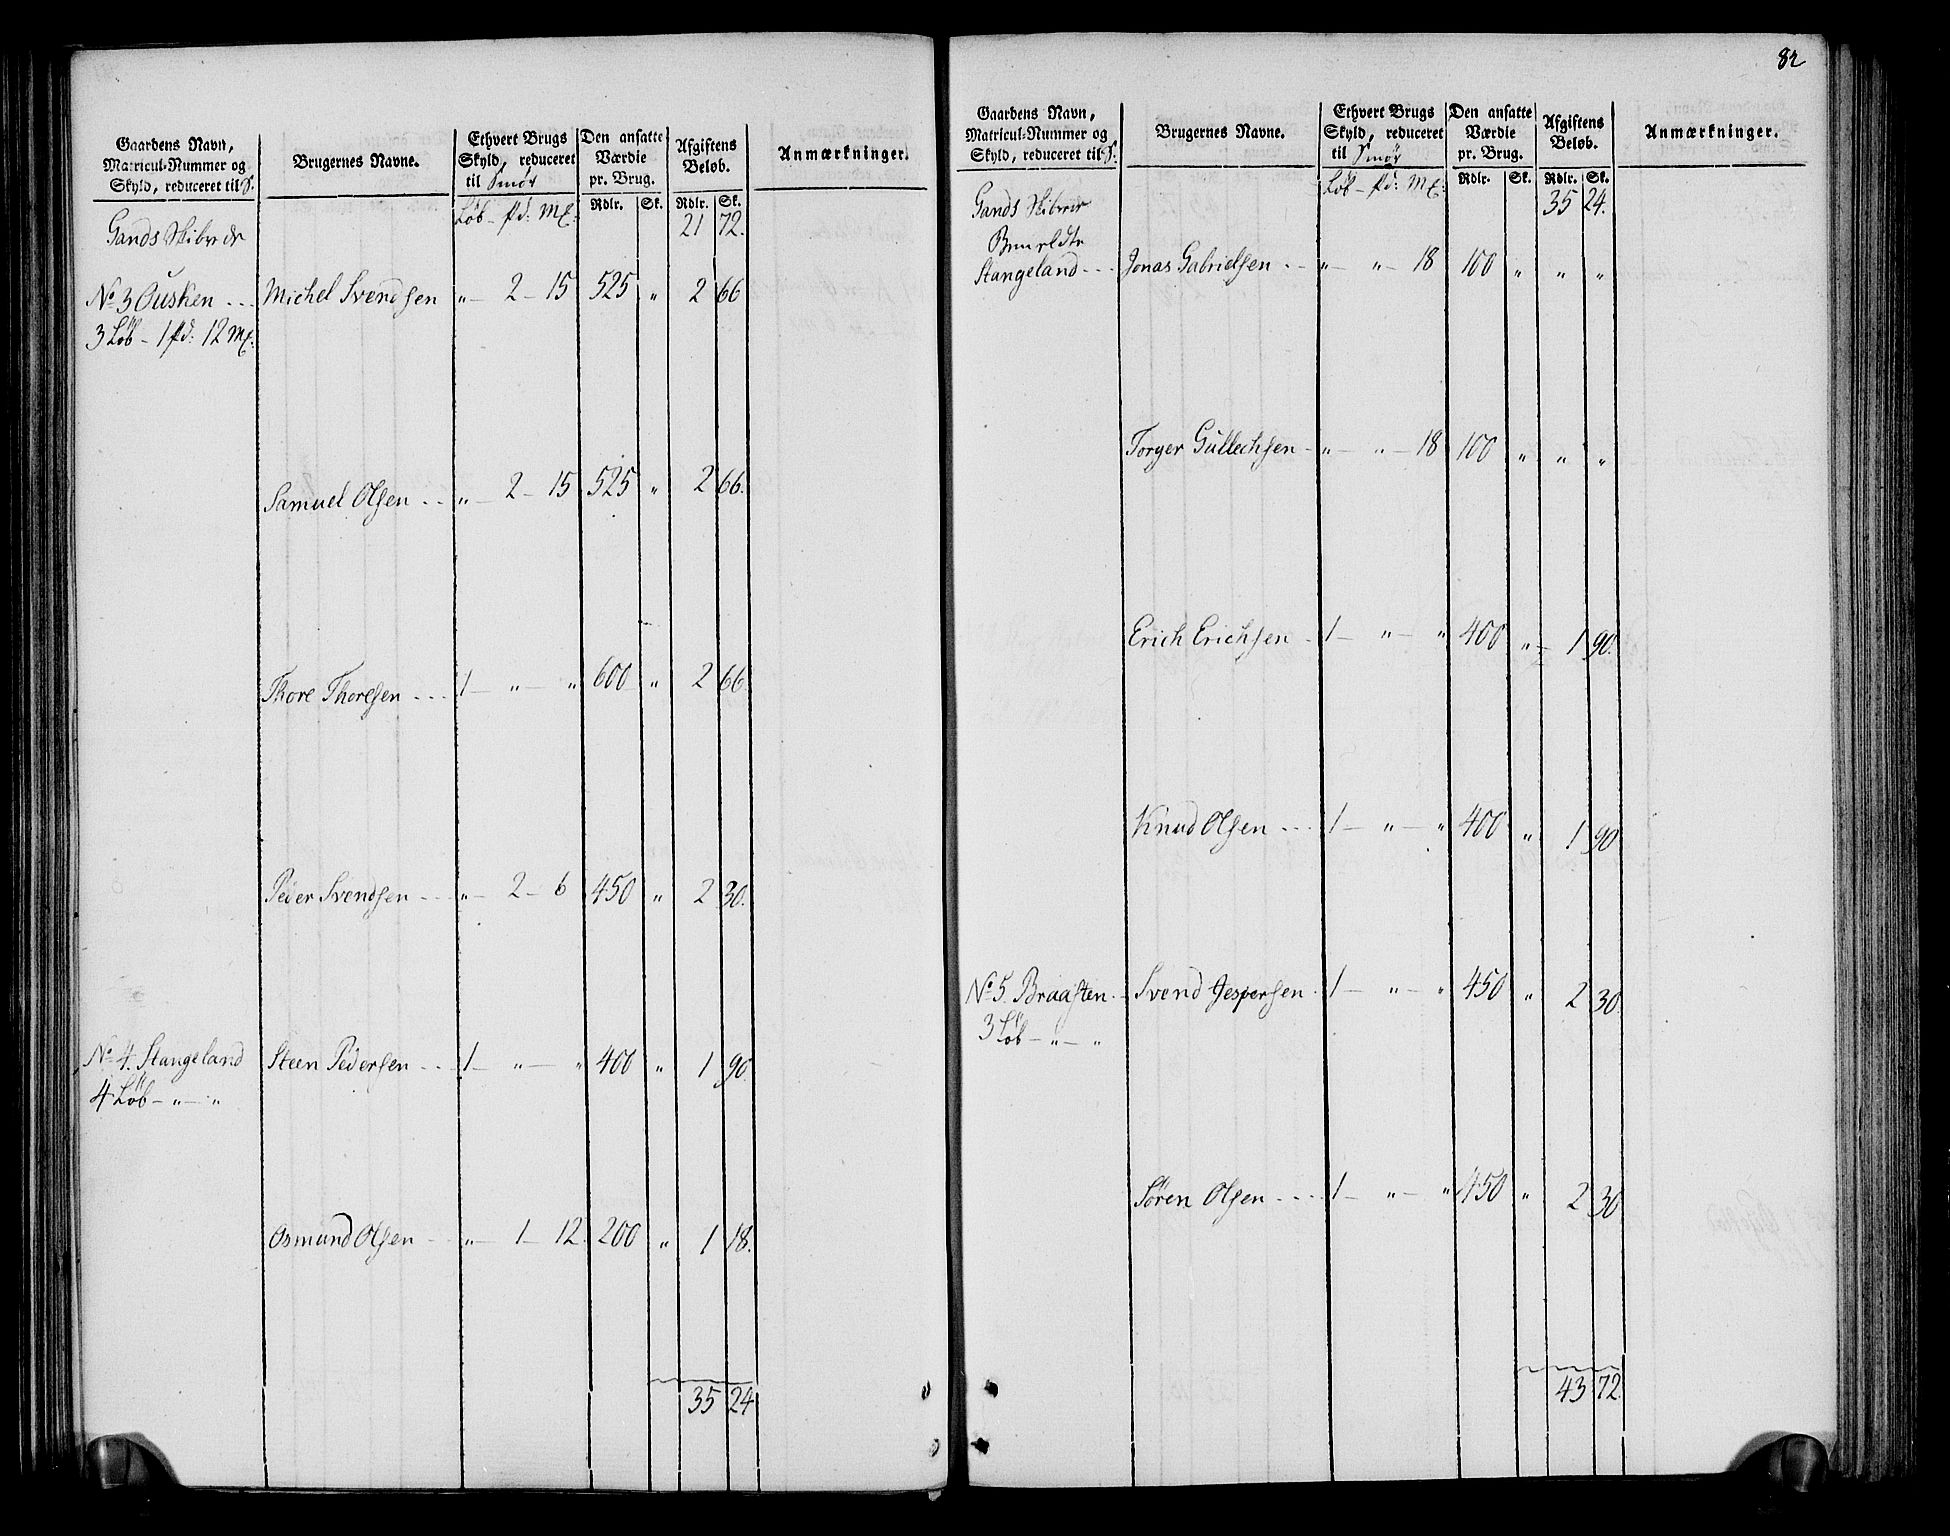 Gaardens Navn,
Matricul-Nummer og
Skyld, reduceret til S.
Brugernes Navne.
Ethvert Brugs
Skyld, reduceret
til Smør
Den ansatte
Værdie
pr. Brug.
Afgiftens
Beløb.
Anmærkninger.
Løb - Pd: Mk:
Rdlr. Sk. Rdlr. Sk.
Gands Skibrede 21 72.
No 3 Ousken ... Michel Svendsen „ — 2 — 15 525 „ 2 66
3 Løb - 1 Pd: 12 Mk:
Samuel Olsen .. „ — 2 — 15 525 „ 2 66.
Thore Thoresen ... 1 — „ — „ 600 „ 2 66.
Peder Svendsen ... „ — 2 — 6 450 „ 2 30.
No 4. Stangeland Steen Pedersen ... 1 — „ — „ 400 „ 1 90.
4 Løb - „ — „
Osmund Olsen - „ — 1 — 12. 200 „ 1 18.
35 24
82
Gaardens Navn,
Matricul-Nummer og
Skyld, reduceret til S.
Brugernes Navne.
Ethvert Brugs
Skyld, reduceret
til Smør
Den ansatte
Værdie
pr. Brug.
Afgiftens
Beløb.
Anmærkninger.
Løb - Pd: Mk:
Rdlr. Sk. Rdlr. Sk.
Gands Skibrede 35 24.
Stangeland ... Jonas Gabrielsen .. „ — „ — 18 100 „ „ „
Torger Gullechsen - „ — „ — 18 100 „ „ „
Erich Erichsen . 1 — „ — „ 400 „ 1 90.
Knud Olsen ... 1 — „ — „ 400 „ 1 90
No 5. Braasten .. Svend Jespersen . 1 — „ — „ 450 „ 2 30.
3 Løb - „ — „
Søren Olsen .... 1 — „ — „ 450 „ 2 30
43 72.